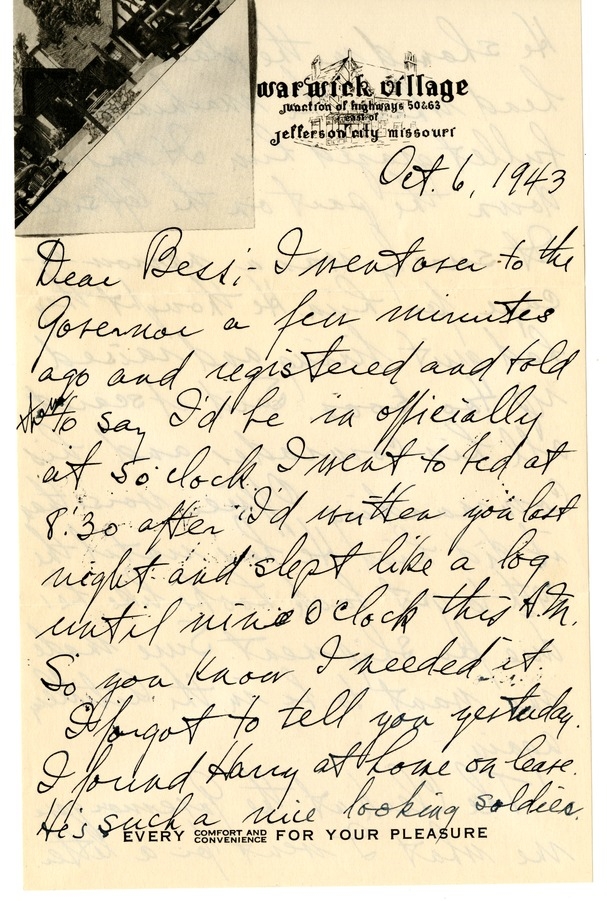 warwick village
junction of highways 50&63
east of
jefferson city missouri
Oct. 6, 1943
Dear Bess;- I went over to the
Governor a few minutes
ago and registered and told
them to say I'd be in officially
at 5 o'clock. I went to bed at
8:30 after I'd written you last
night and slept like a log
until nine O'clock this A.M.
So you know I needed it.
I forgot to tell you yesterday.
I found Harry at home on leave.
He's such a nice looking soldier.
EVERY COMFORT AND CONVENIENCE FOR YOUR PLEASURE